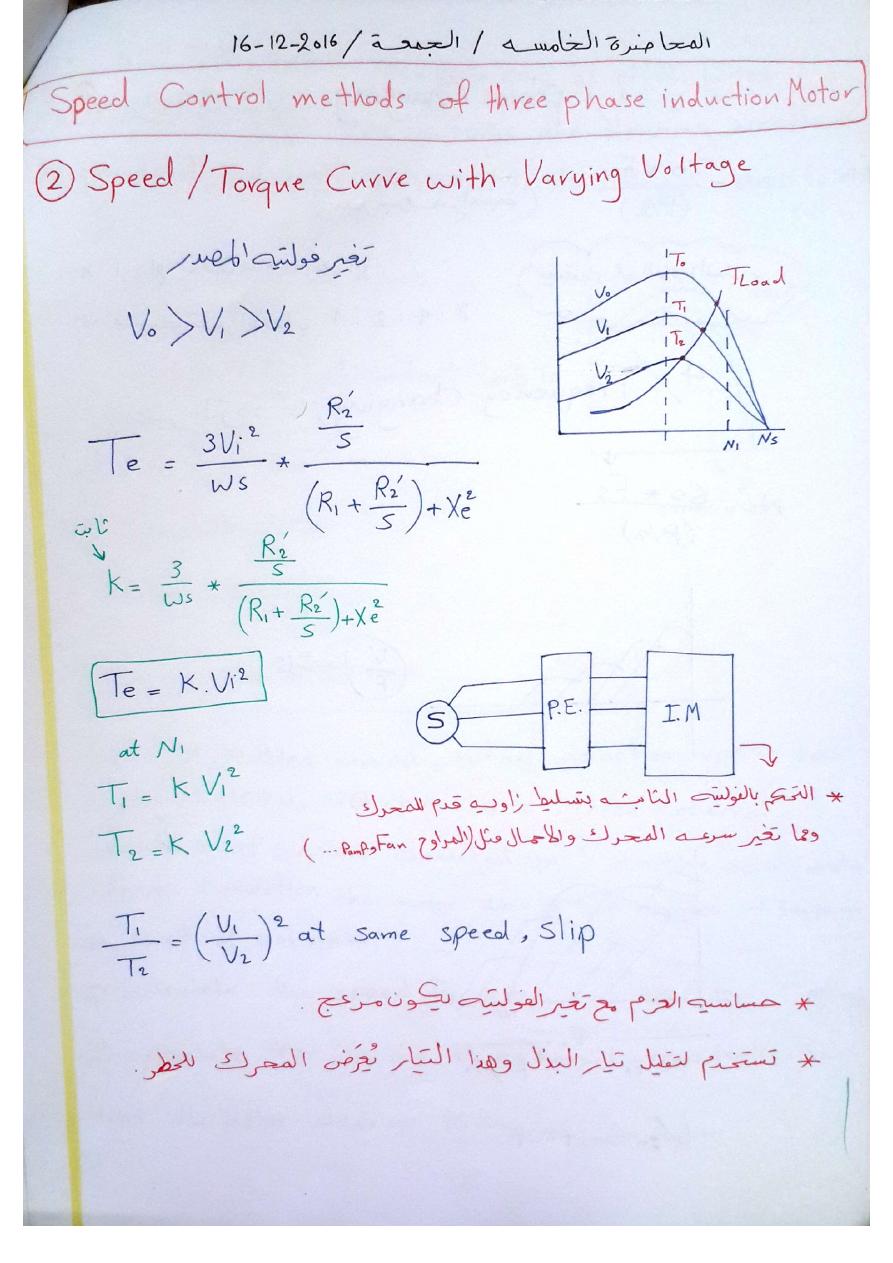 المحاضرة الخامسه / الجمعة / 16-12-2016
Speed Control methods of three phase induction Motor
② Speed / Torque Curve with Varying Voltage
تغير فولتيه المصدر
V₀ > V₁ > V₂
T₀
TLoad
V₀
T₁
V₁
T₂
V₂
N₁ Ns
Te = 3Vi²/Ws * (R₂′/S) / ((R₁ + R₂′/S) + Xe²)
ثابت
K = 3/Ws * (R₂′/S) / ((R₁ + R₂′/S) + Xe²)
Te = K.Vi²
S P.E. I.M
at N₁
T₁ = K V₁²
T₂ = K V₂²
* التحكم بالفولتيه الثابته بتسليط زاويه قدم للمحرك
ومما تغير سرعه المحرك والاحمال مثل (المراوح Fan و Pamp ...)
T₁/T₂ = (V₁/V₂)² at same speed, Slip
* حساسيه العزم مع تغير الفولتيه يكون مزعج .
* تستخدم لتقليل تيار البدل وهذا التيار يُعَرض المحرك للخطر .